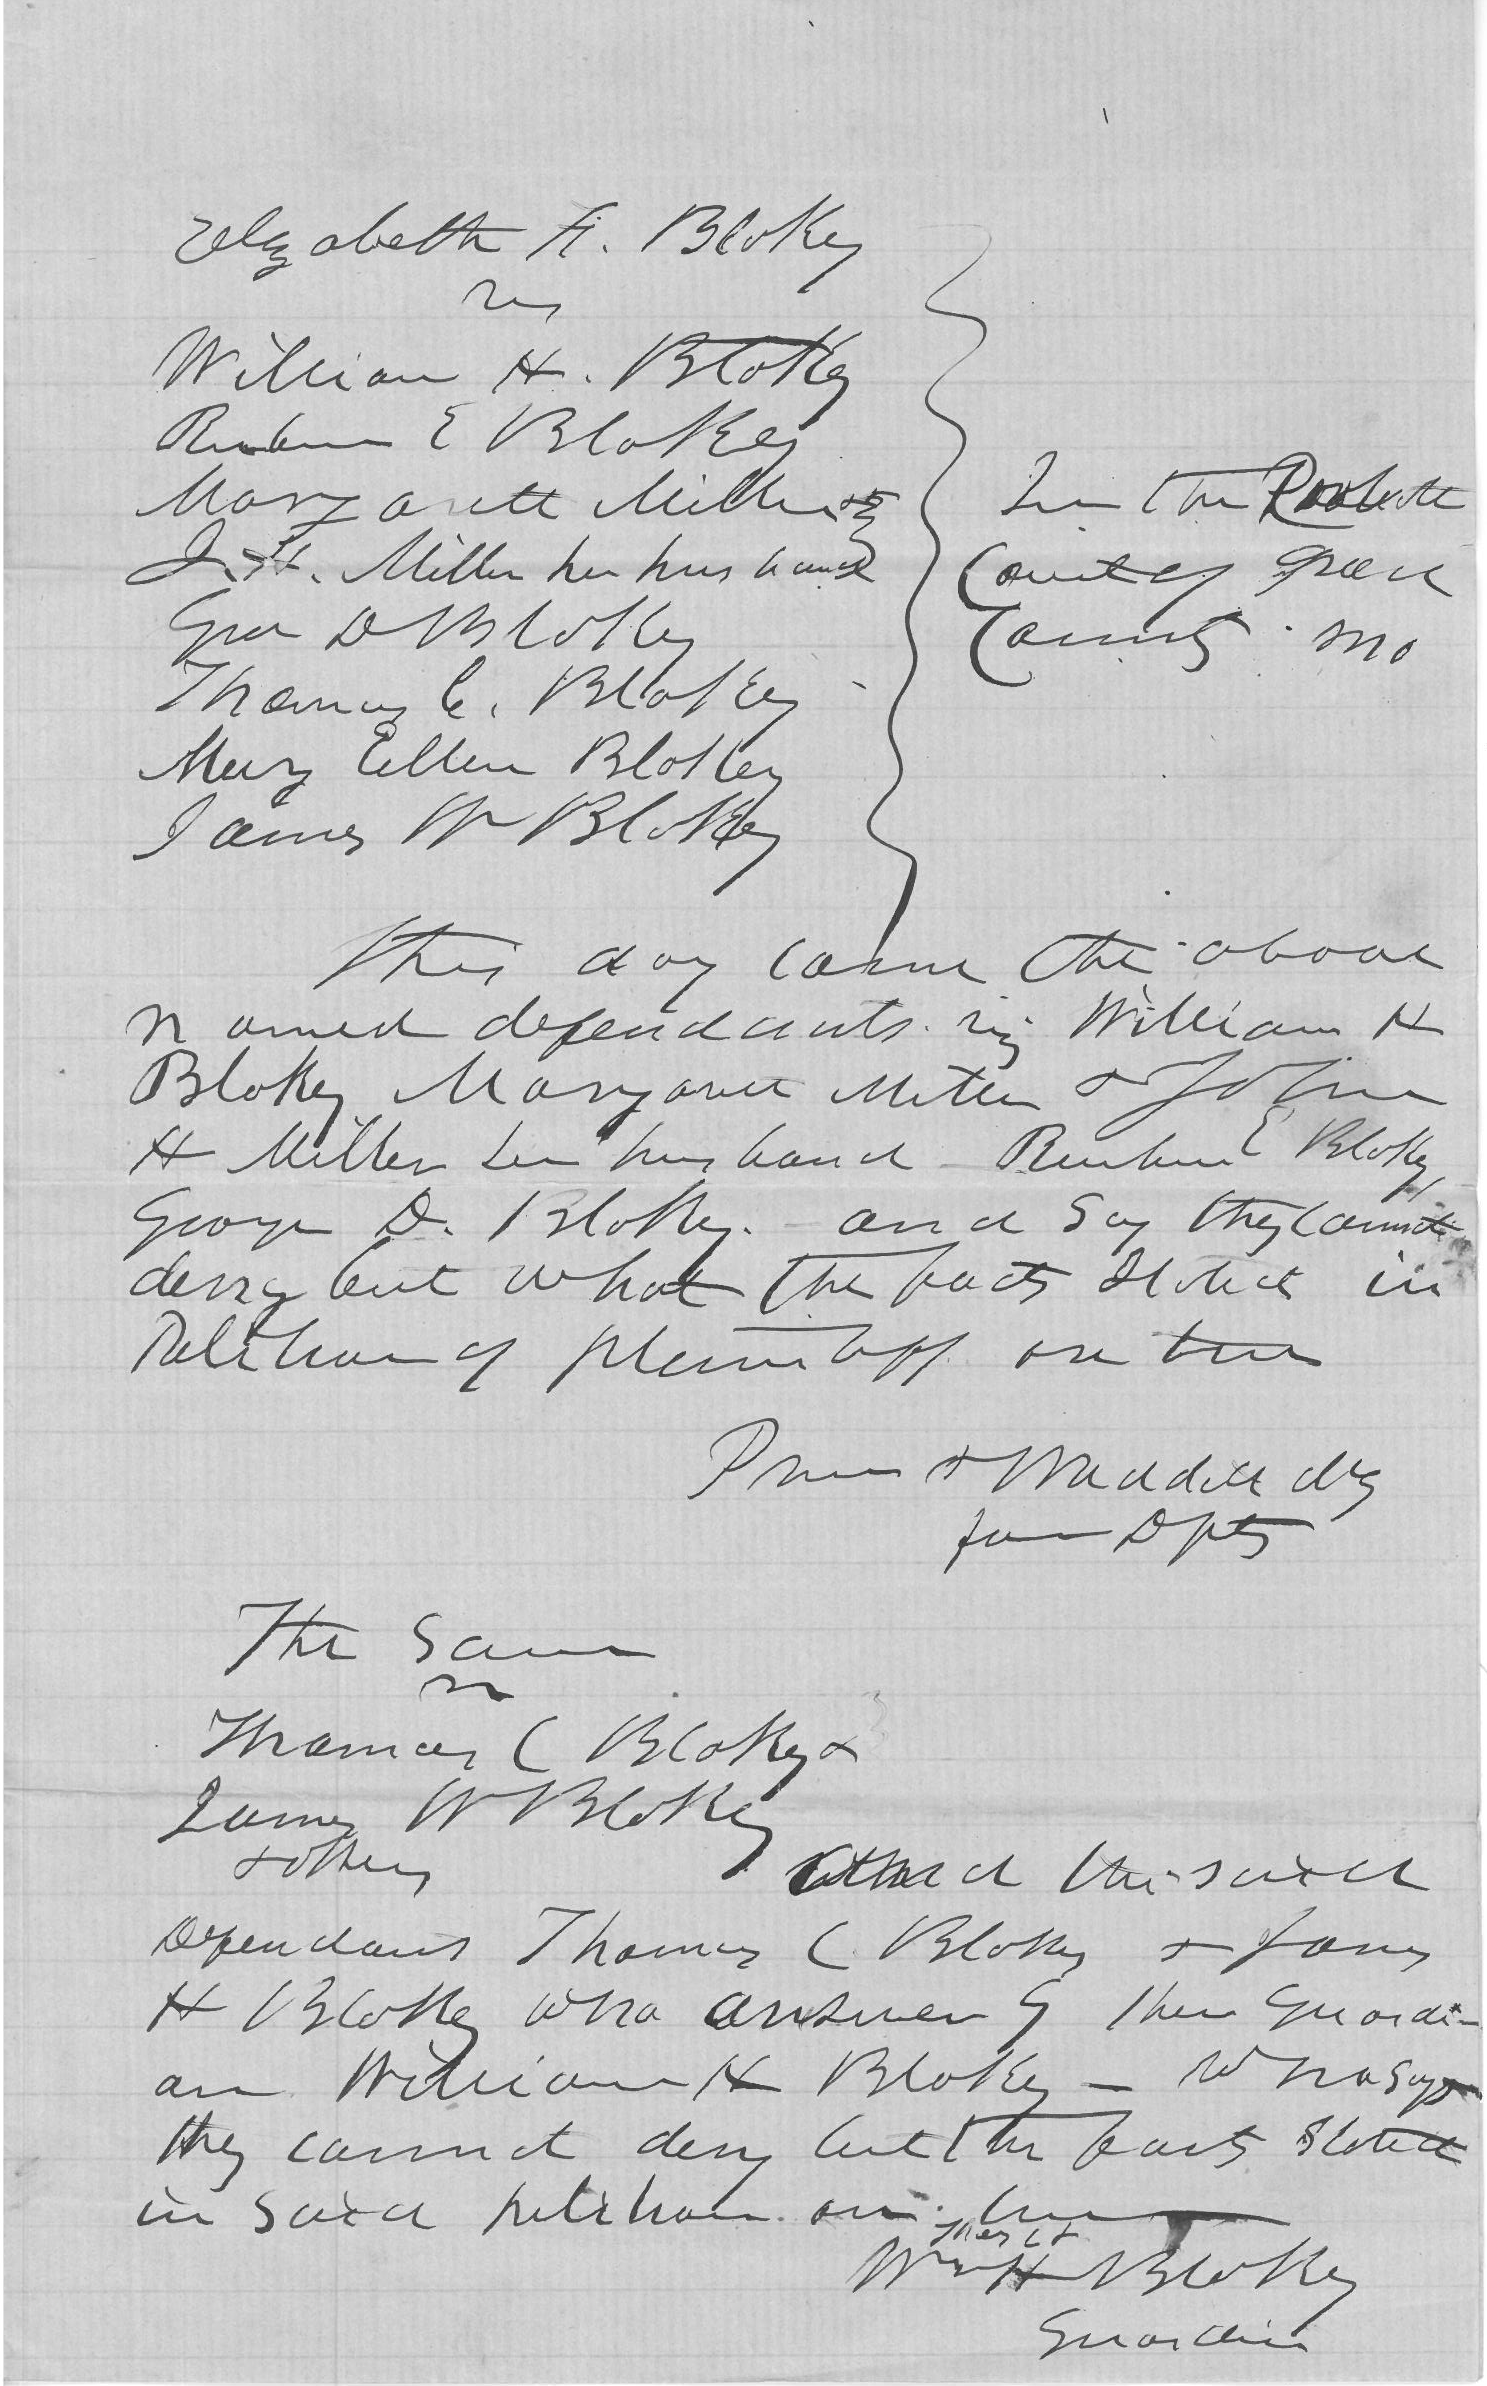 Elizabeth A. Blakey
vs
William H. Blakey
Reuben E Blakey
Margarett Miller &
J. H. Miller her husband
Geo D Blakey
Thomas C. Blakey
Mary Ellen Blakey
James W Blakey
In the Probate
Court of Green
County Mo
This day came the above
named defendants. viz William H
Blakey Margarett Miller & John
H Miller her husband Reuben E Blakey,
George D. Blakey. and say they cannot
deny but what the facts stated in
Petition of plaintiff are true
& Waddill atty
for Dfts
The Same
vs
Thomas C Blakey &
James W Blakey
& others
And the said
Defendants Thomas C Blakey & James
H Blakey who answer by their Guardi-
an William H Blakey – who says
they cannot deny but the facts stated
in said petition are true
Wm H Blakey
Guardian